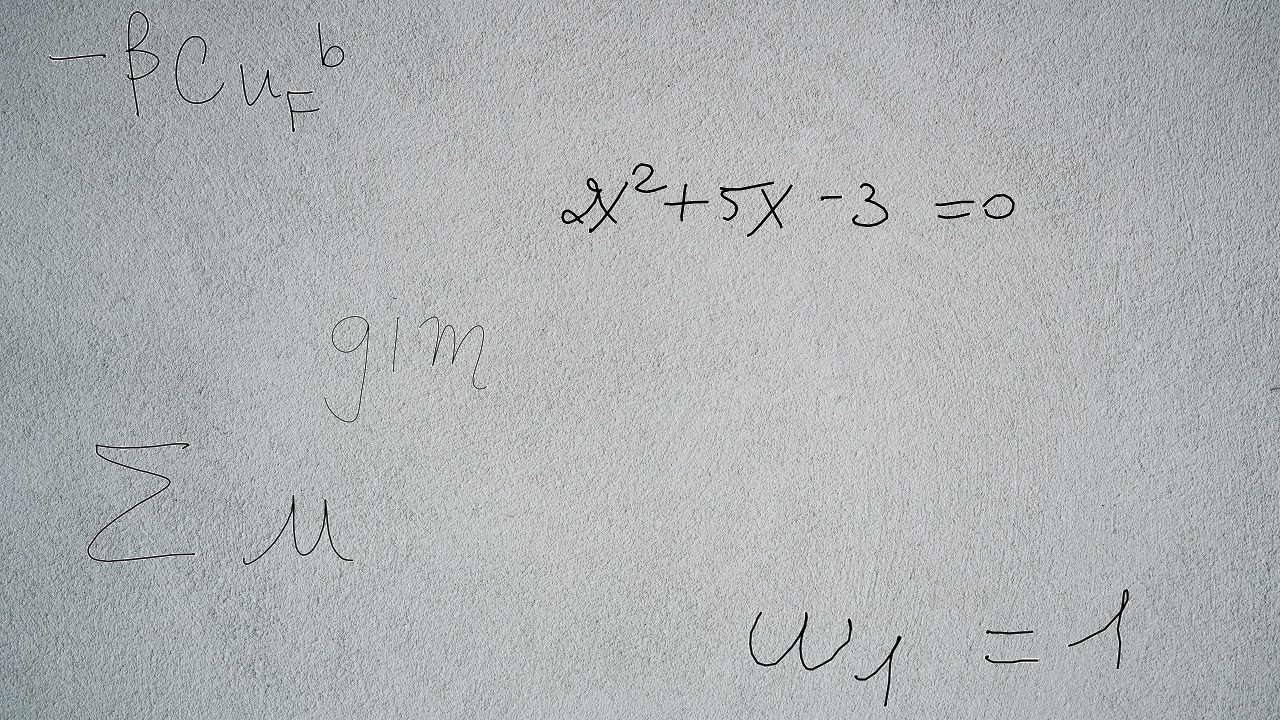 -βCu_F^b
2x²+5x-3=0
gim
Σμ
ω₁=1